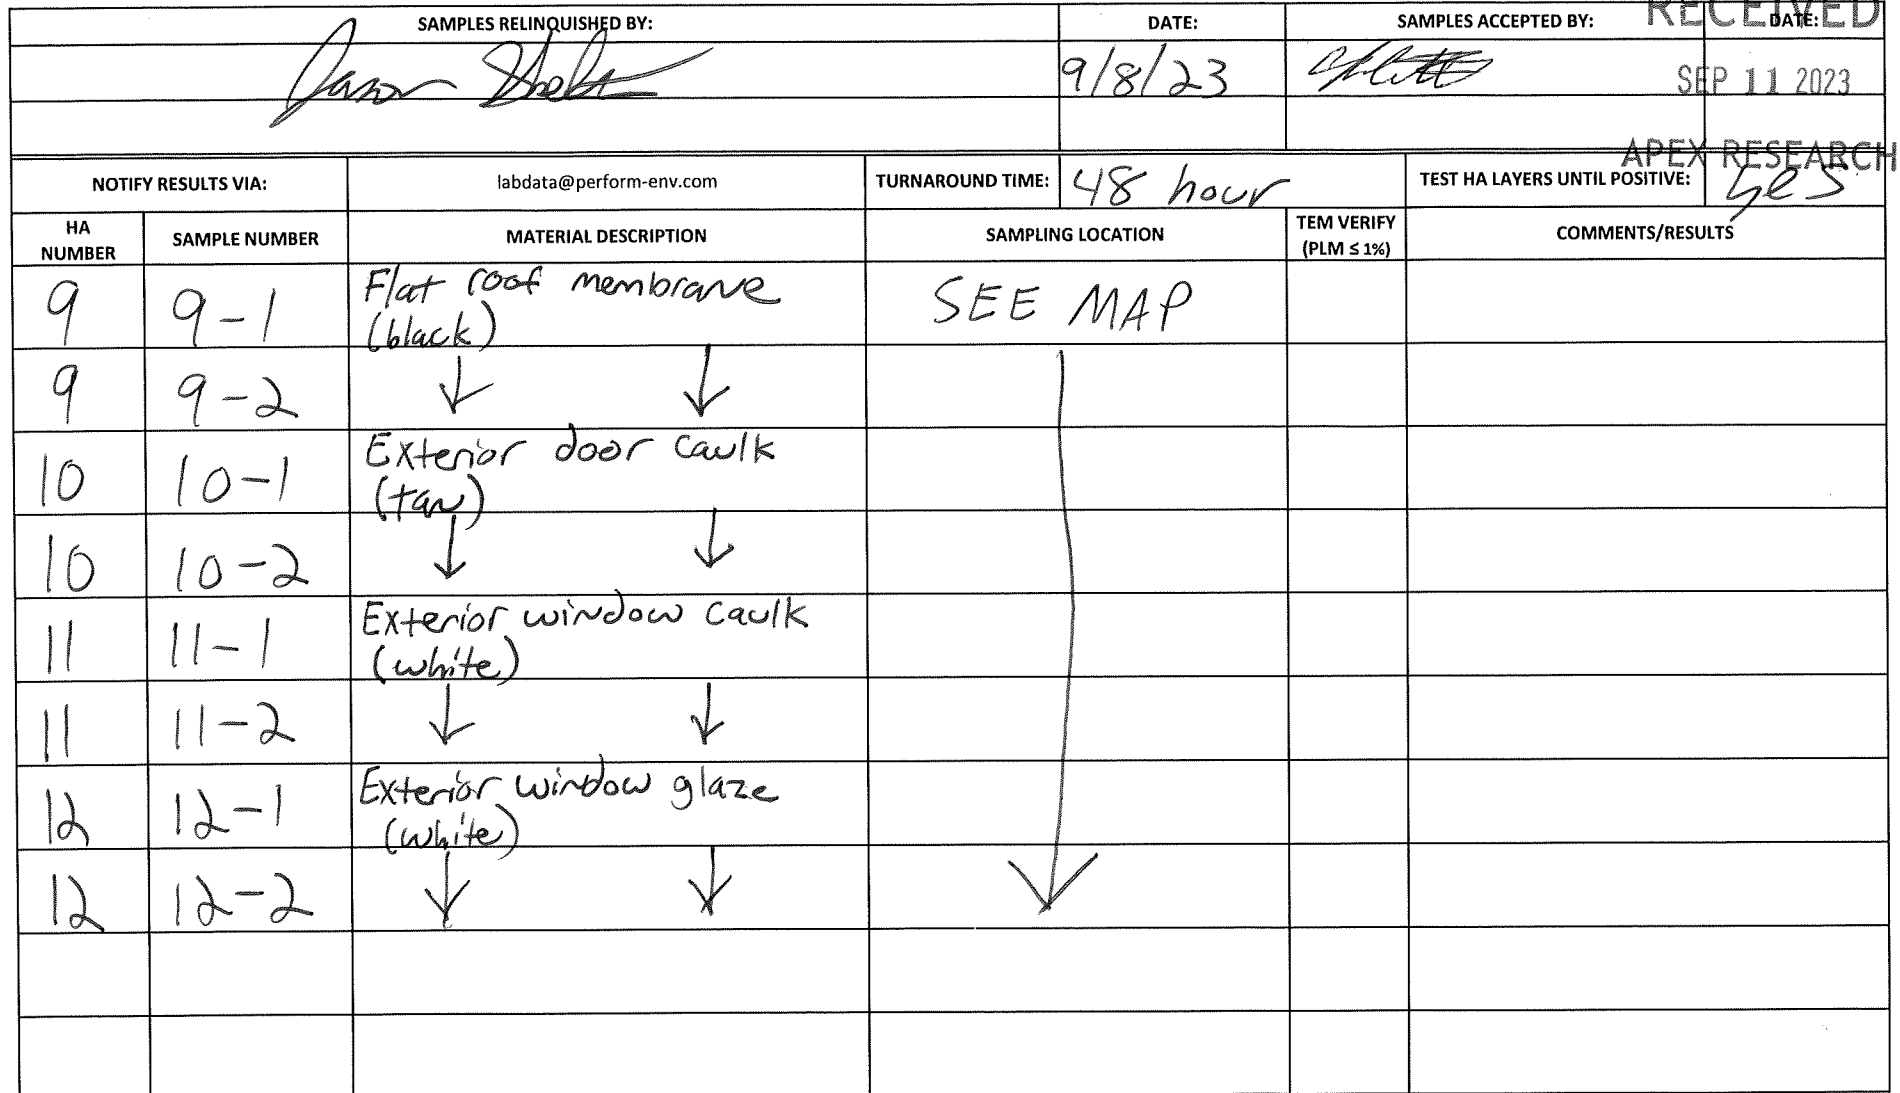 SAMPLES RELINQUISHED BY: DATE: SAMPLES ACCEPTED BY: DATE:
RECEIVED
Jason 9/8/23
SEP 11 2023
APEX RESEARCH
NOTIFY RESULTS VIA: labdata@perform-env.com TURNAROUND TIME: 48 hour TEST HA LAYERS UNTIL POSITIVE: yes
HA NUMBER SAMPLE NUMBER MATERIAL DESCRIPTION SAMPLING LOCATION TEM VERIFY (PLM ≤ 1%) COMMENTS/RESULTS
9 9-1 Flat roof membrane SEE MAP
(black)
9 9-2
10 10-1 Exterior door caulk
(tan)
10 10-2
11 11-1 Exterior window caulk
(white)
11 11-2
12 12-1 Exterior window glaze
(white)
12 12-2